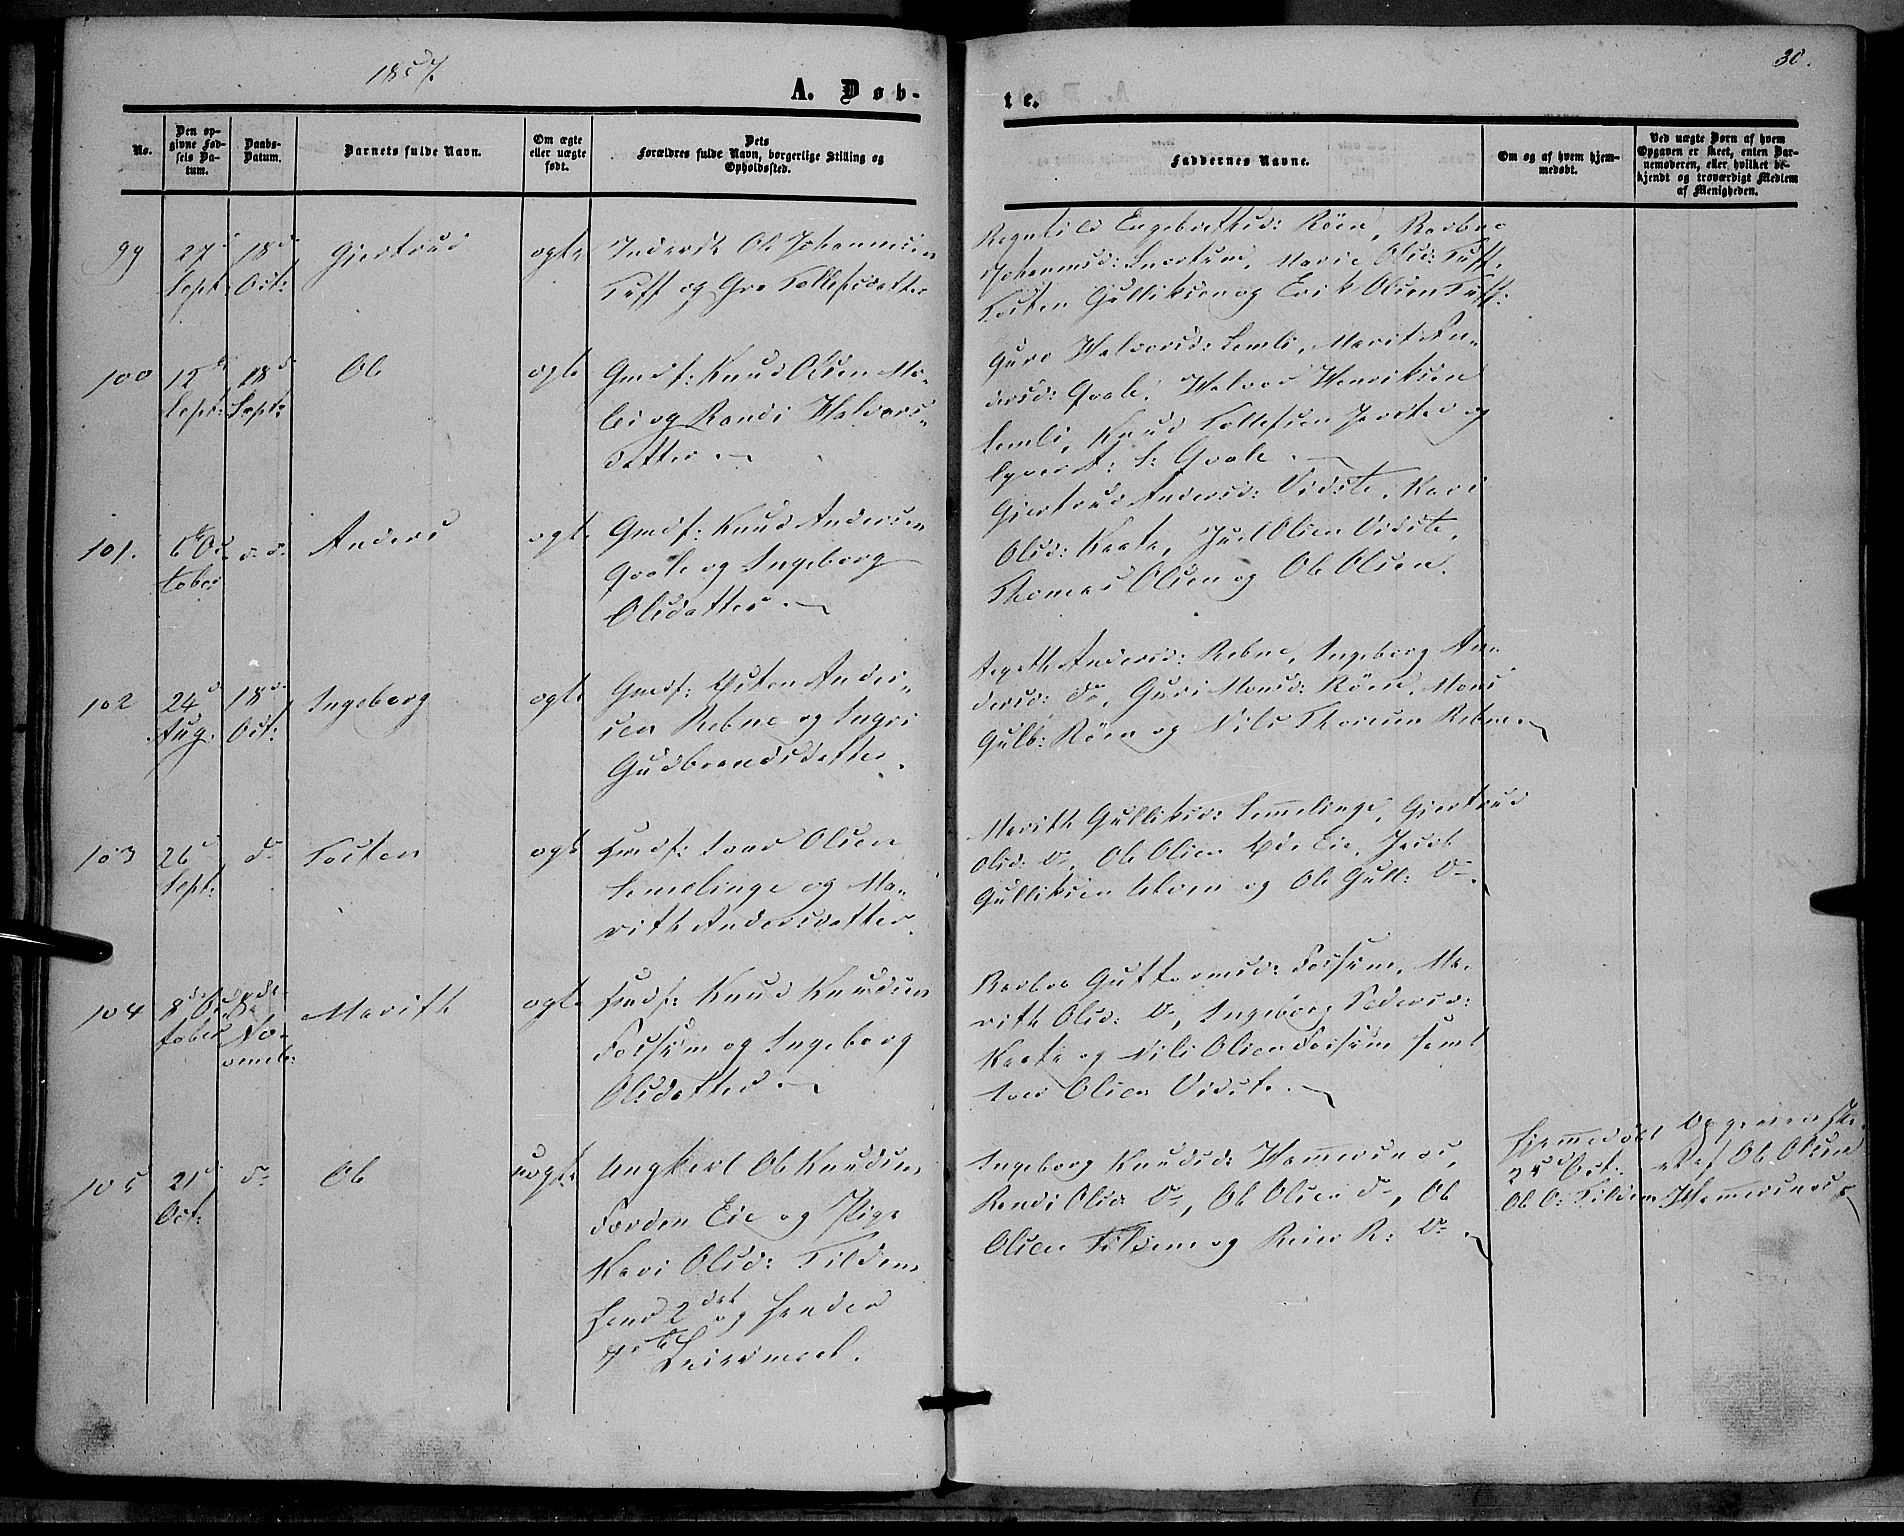 1857.
30.
A. Døb-
te.
No.
Den op-
givne Fød-
sels Da-
tum.
Daabs-
Datum.
Barnets fulde Navn.
Om ægte
eller uægte
født.
Dets
Forældres fulde Navn, borgerlige Stilling og
Opholdssted.
Faddernes Navne.
Om og af hvem hjem-
medøbt.
Ved uægte Børn af hvem
Opgaven er skeet, enten Bar-
nemoderen, eller hvilket be-
kjendt og troværdigt Medlem
af Menigheden.
99 27d 18d Gjertrud ægte Inderst Ole Johannesen
Sept. Oct: Tuft og Gro Tollefsdatter
Ragnild Engebretsd: Röen, Barbro
Johannesd: Tuft, Marie Olsd: Tuft,
Tosten Gulliksen og Erik Olsen Tuft.
100 12d 18d Ole ægte Gmdf: Knud Olsen Mo-
Sept: Sept: lei og Randi Halvors-
datter.
Guro Halvorsd: Semli, Marit An-
dersd: Qvale, Halvor Henriksen
Semli, Knud Tollefsen og
S: Qvale.
101. 6te Oc- d. d. Anders ægte Gmdf: Knud Andersen
tober Qvale og Ingeborg
Olsdatter.
Gjertrud Andersd: Vidste, Kari
Olsd: Kaata, Juel Olsen Vidste,
Thomas Olsen og Ole Olsen.
102 24d 18d Ingeborg ægte Gmdf: Østen Ander-
Aug. Oct: sen Rebne og Ingri
Gudbrandsdatter.
Andersd: Rebne, Ingeborg An-
dersd: do, Guri Monsd: Röen, Mons
Gulb: Röen og Nils Thoresen Rebne.
103 26d do Tosten ægte Hmdf: Ivar Olsen
Sept: Semelinge og Ma-
rith Andersdatter.
Marith Gulliksd: Semmelinge, Gjertrud
Olsd: do, Ole Olsen Eie, Jacob
Gulliksen Ulven og Ole Gull: do.
104 8de Oc- 8de Marith ægte Hmdf: Knud Knudsen
tober No-
vemb: Fossum og Ingeborg
Olsdatter.
Barbro Guttormsd: Fossum, Ma-
rith Olsd: do, Ingeborg Pedersd:
Kaata og Nils Olsen Fossum samt
Iver Olsen Vidste.
105 21d do Ole uægte Ungkarl Ole Knudsen
Oct: Förden Eie og Pige
Kari Olsd: Tildem
hans 2det og hendes
1ste Leiermaal.
Ingeborg Knudsd: Hammersnæs,
Randi Olsd: do, Ole Olsen do, Ole
Olsen Tildem og Reier R: do.
hjemmedøbt
25d Oct: af
Ole O: Tildem
Opgaven ske-
et af Ole Olsen
Hammersnæs